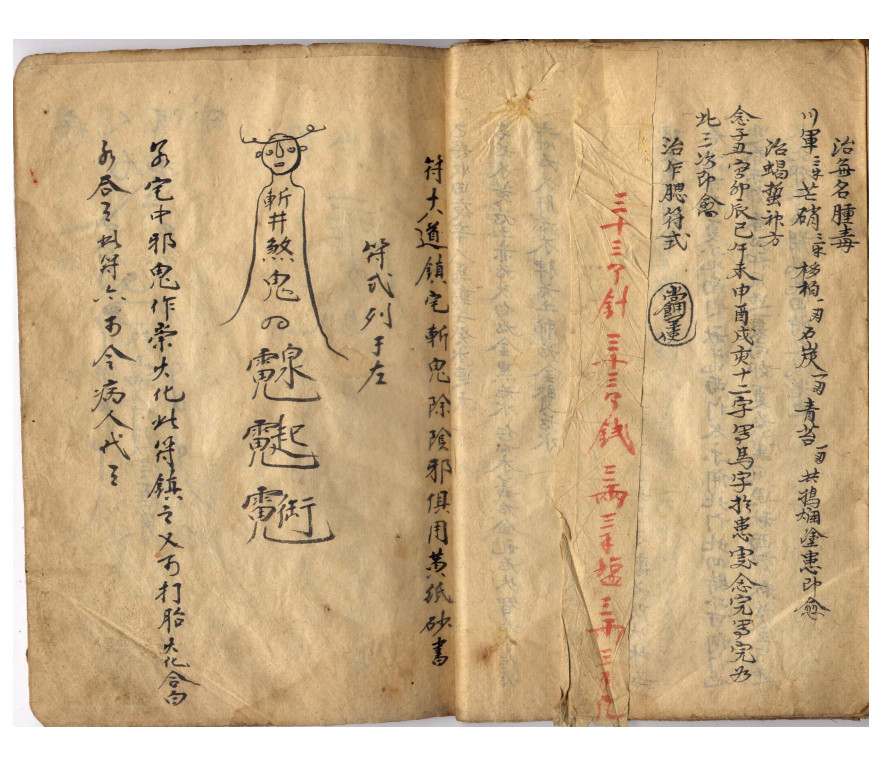 治每名腫毒
川軍三朱芒硝三朱 柏一刃石炭一刃青苔一刃共搗爛塗患即愈
治蝎蜇神方
念子丑寅卯辰巳午未申酉戌亥十二字寫馬字於患處念完寫完如
此三次即愈
治乍腮符式
三十三个針 三十三个錢 三兩三 塩 三
符十八道鎮宅斬鬼除陰邪俱用黃紙砂書
符式列于左
斬井煞鬼
若宅中邪鬼作祟火化此符鎮之又可打胎火化合白
水吞之此符亦可令病人代之